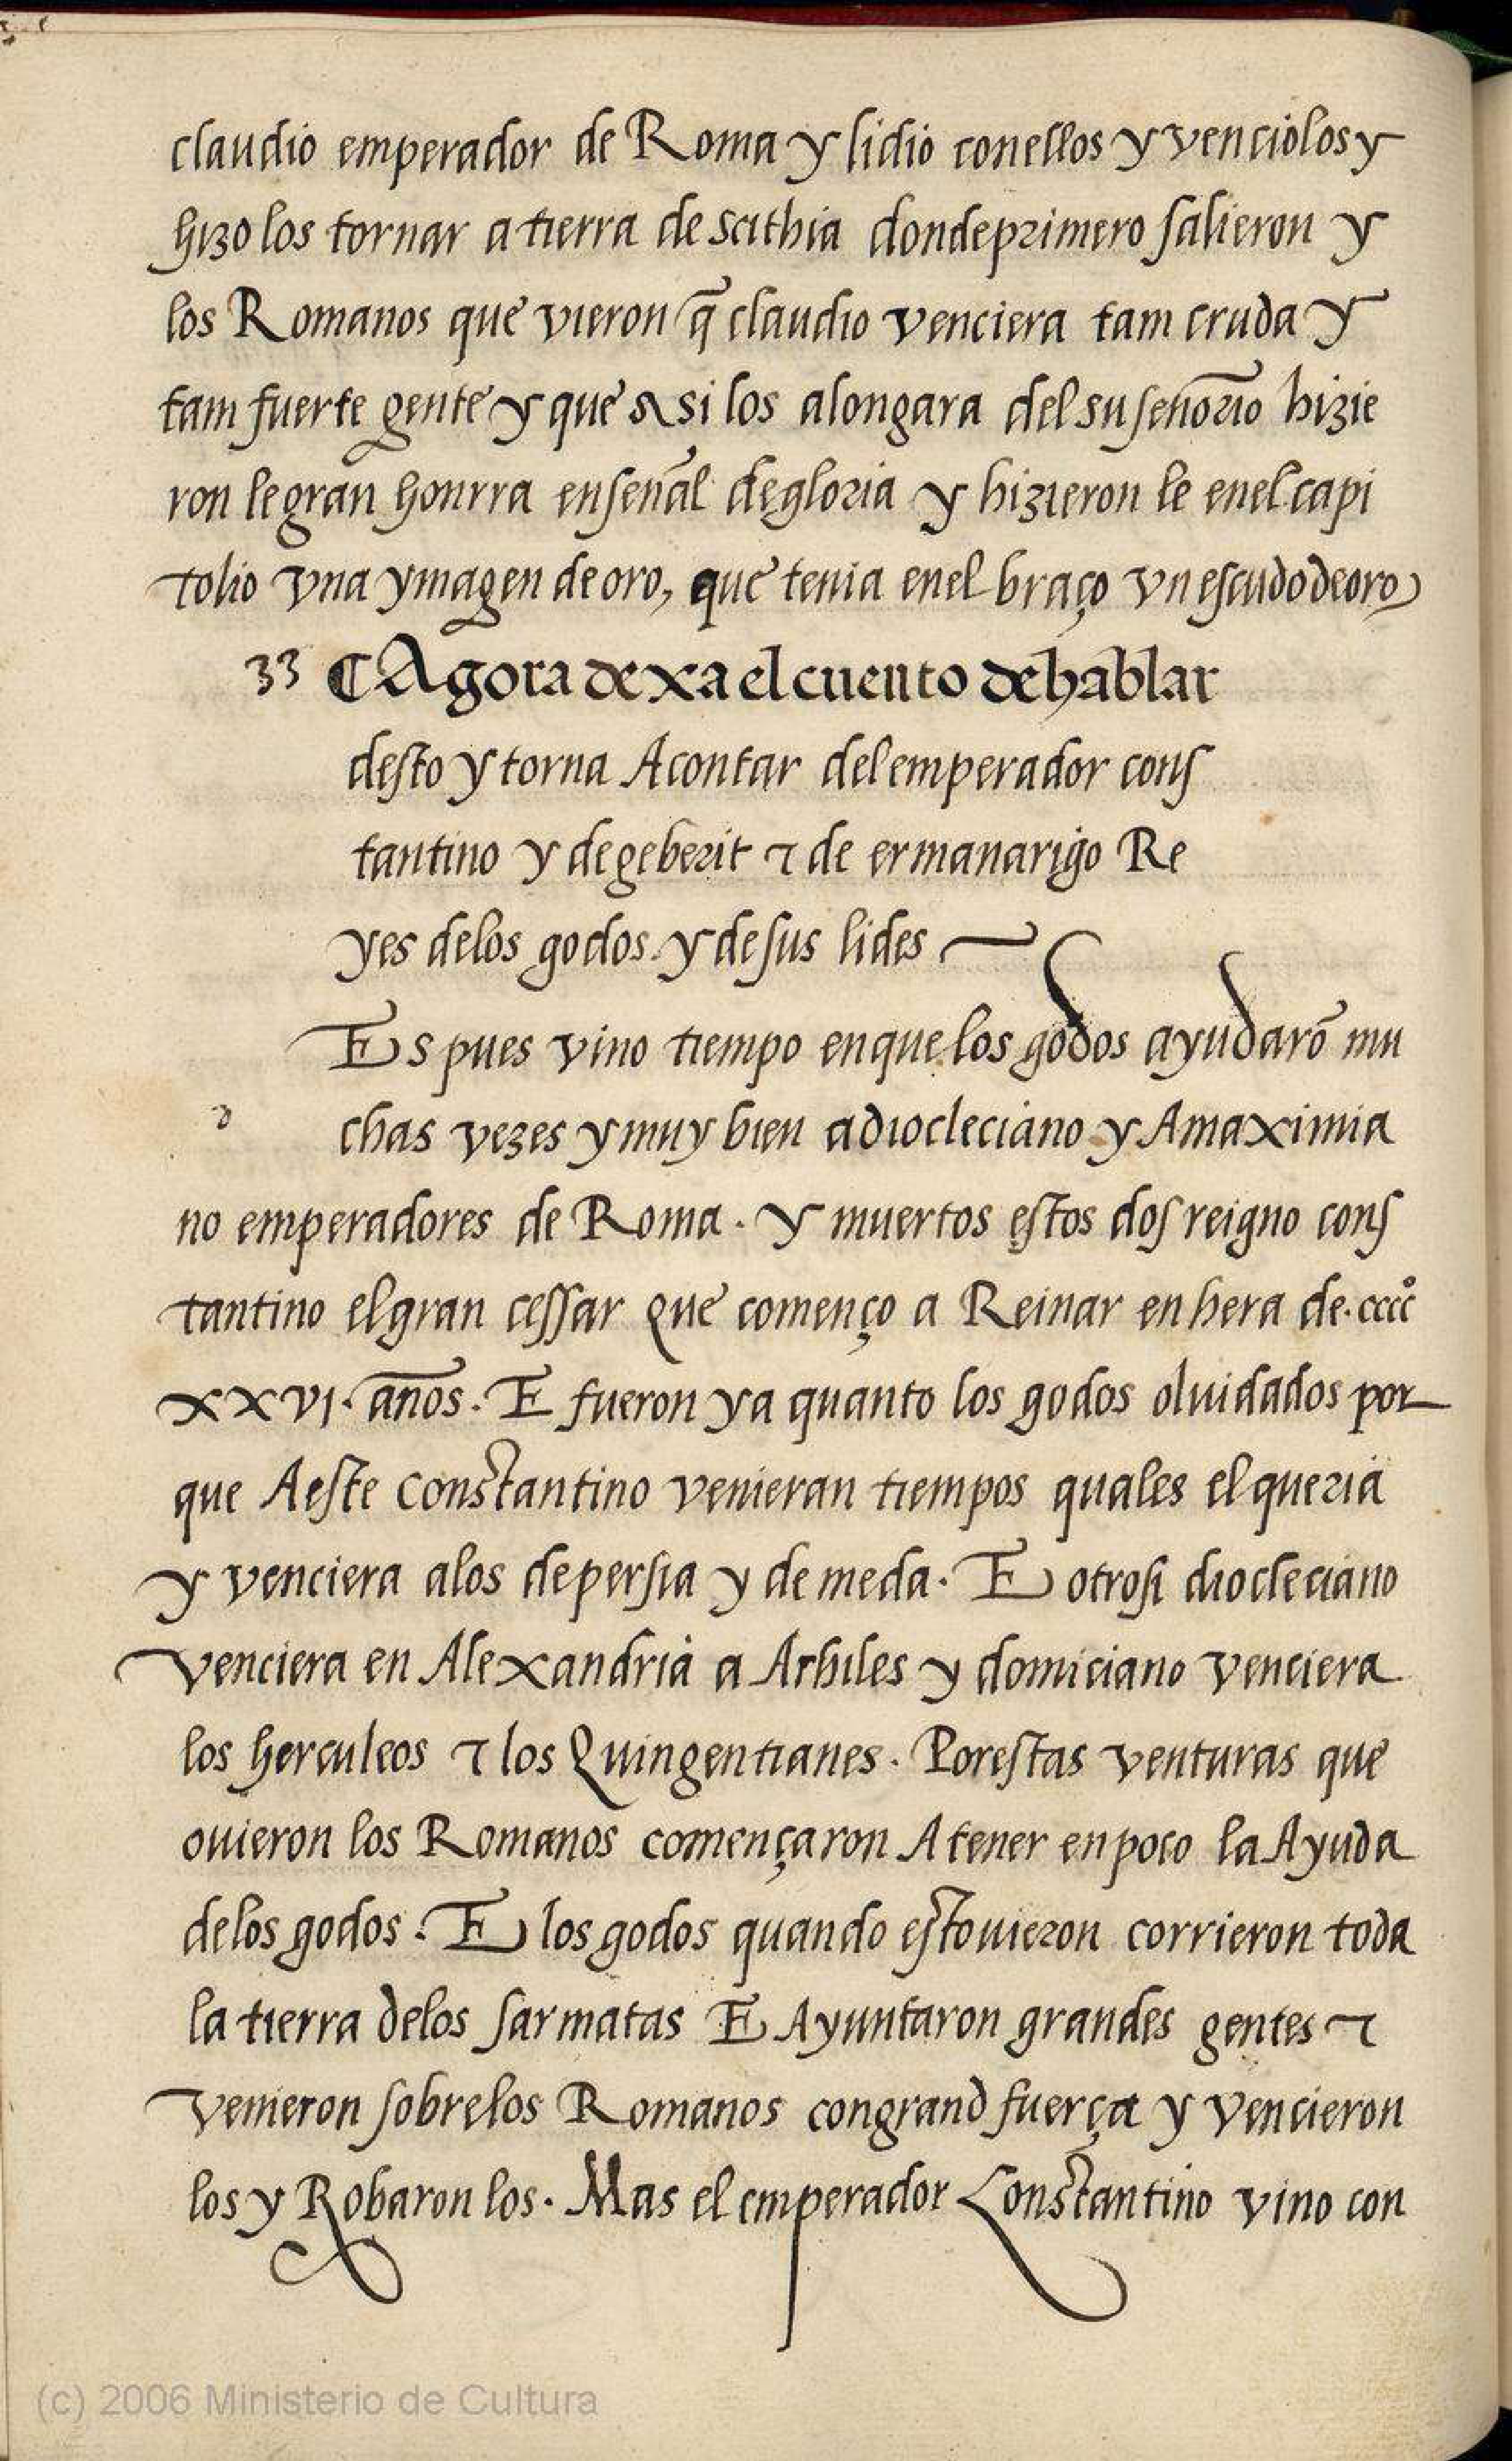 claudio emperador de Roma y lidio conellos y venciolos y
hizo los tornar a tierra de scithia dondeprimero salieron y
los Romanos que vieron q̃ claudio venciera tam cruda y
tam fuerte gente y que asi los alongara del su señorio hizie
ron le gran honrra enseñal degloria y hizieron le enel capi
tolio vna ymagen de oro, que tenia enel braço vn escudo de oro
33 ¶ Agora dexa el cuento de hablar
desto y torna Acontar del emperador cons
tantino y de geberit ⁊ de ermanarigo Re
yes delos godos. y de sus lides
Es pues vino tiempo enque los godos ayudarõ mu
chas vezes y muy bien a diocleciano y Amaximia
no emperadores de Roma. y muertos estos dos reigno cons
tantino el gran cessar que començo a Reinar en hera de. cccc°
xxvi. años. E fueron ya quanto los godos oluidados por
que Aeste constantino venieran tiempos quales el queria
y venciera alos de persia y de meda. E otrosi diocleciano
venciera en Alexandria a Arhiles y domiciano venciera
los herculeos ⁊ los Quingentianes. Porestas venturas que
ouieron los Romanos començaron Atener enpoco la Ayuda
delos godos. E los godos quando estouieron corrieron toda
la tierra delos sarmatas E Ayuntaron grandes gentes ⁊
venieron sobrelos Romanos congrand fuerça y vencieron
los y Robaron los. Mas el emperador Constantino vino con
(c) 2006 Ministerio de Cultura